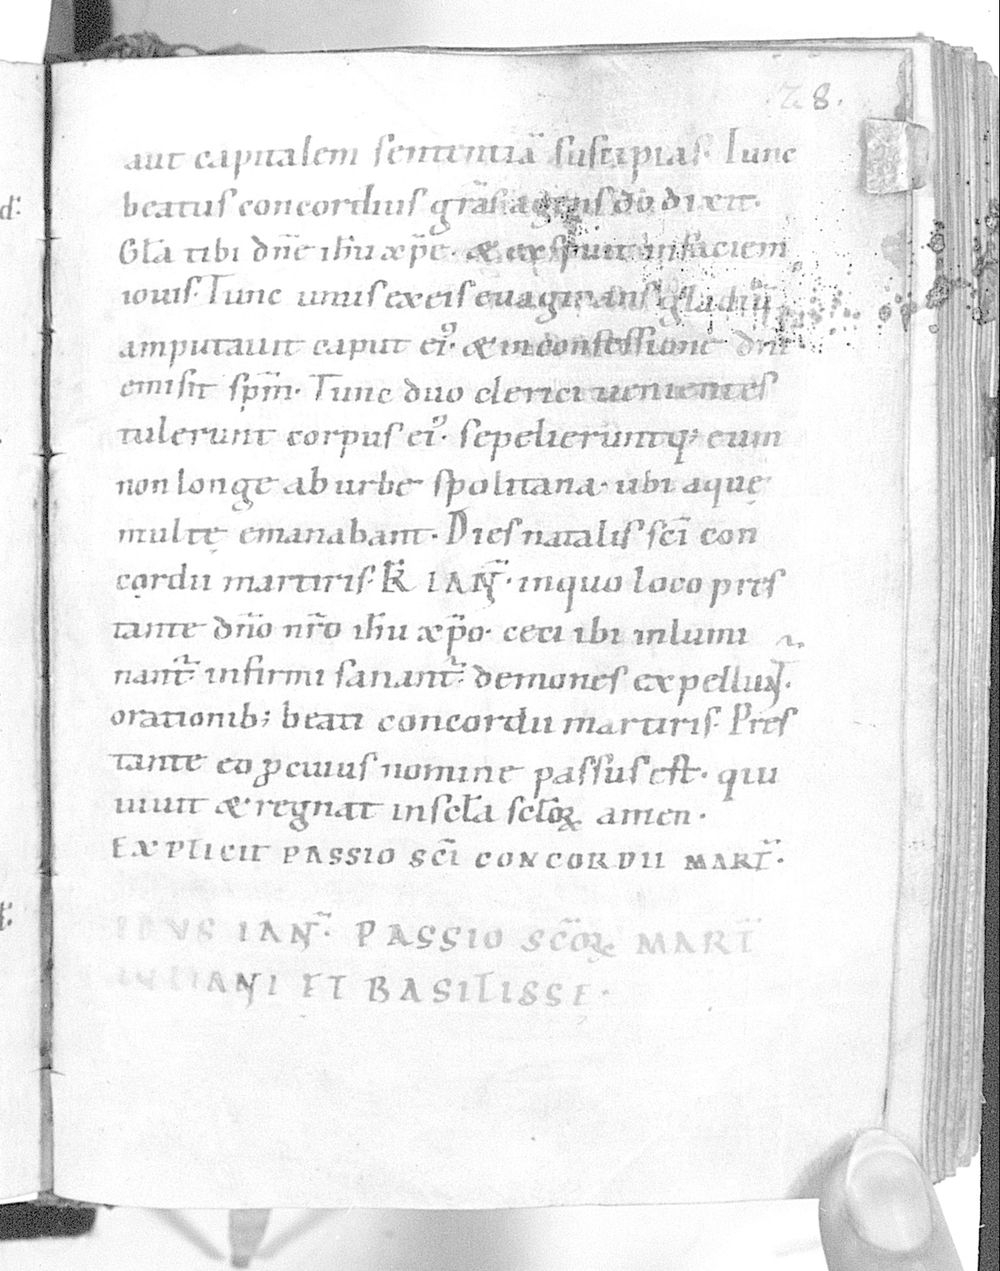 28.
aut capitalem sententiā suscipias. Tunc
beatus concordius grās agens dō dixit.
Glā tibi dn̄e ih̄u xp̄e. & exspuit in faciem
iouis. Tunc unus ex eis euaginans gladiū
amputauit caput ei᾽. & in confessione dn̄i
emisit sp̄m. Tunc duo clerici uenientes
tulerunt corpus ei᾽. sepelieruntq; eum
non longe ab urbe spolitana. ubi aquę
multę emanabant. Dies natalis sc̄i con
cordii martiris. K̄ IAN̄. in quo loco pres
tante dn̄o nr̄o ih̄u xp̄o. ceci ibi inlumi
nant᾽. infirmi sanant᾽. demones expellunt᾽.
orationib; beati concordii martiris. Pres
tante eo ꝓ cuius nomine passus est. qui
uiuit & regnat in secl̄a seclōꝝ amen.
EXPLICIT PASSIO SC̄I CONCORDII MART̄.
IDVS IAN̄. PASSIO SC̄OꝜ MART̄
IVLIANI ET BASILISSE.
d᾽: